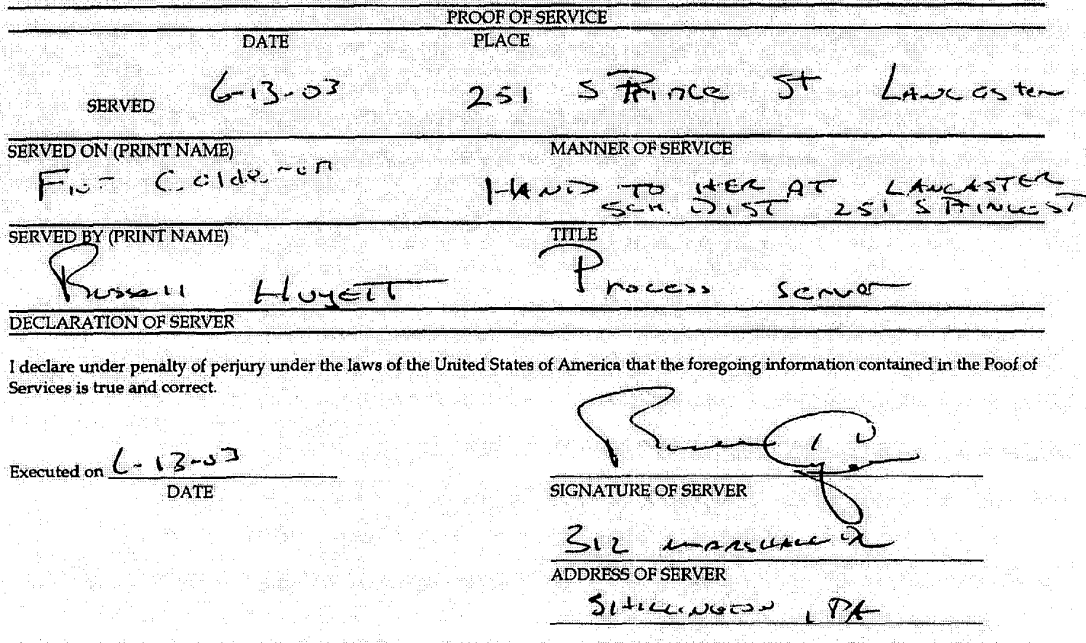 PROOF OF SERVICE
DATE PLACE
SERVED 6-13-03 251 S Prince St Lancaster
SERVED ON (PRINT NAME) MANNER OF SERVICE
Calderon HAND TO HER AT LANCASTER
SCH. DIST 251 S PRINCE ST
SERVED BY (PRINT NAME) TITLE
Russell Huyett Process Server
DECLARATION OF SERVER
I declare under penalty of perjury under the laws of the United States of America that the foregoing information contained in the Poof of
Services is true and correct.
Executed on 6-13-03
DATE SIGNATURE OF SERVER
312 MARSHALL
ADDRESS OF SERVER
SHILLINGTON, PA